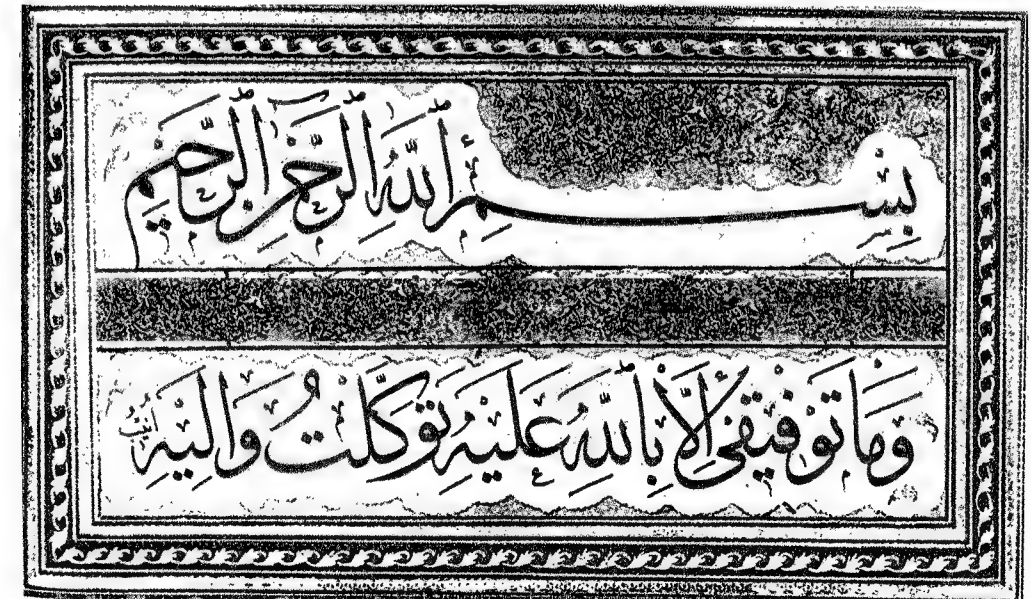 بِسْمِ اللّٰهِ الرَّحْمٰنِ الرَّحِيْمِ
وَمَا تَوْفِيقِى اِلَّا بِاللّٰهِ عَلَيْهِ تَوَكَّلْتُ وَاِلَيْهِ اُنِيْبُ